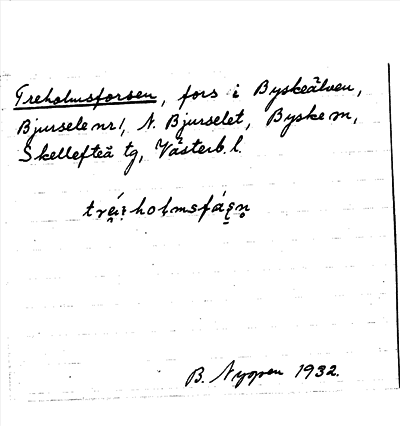 Treholmsforsen, fors i Byskeälven,
Bjursele nr 1, N. Bjurselet, Byske sn,
Skellefteå tg, Västerb. l.
B. Nygren 1932.